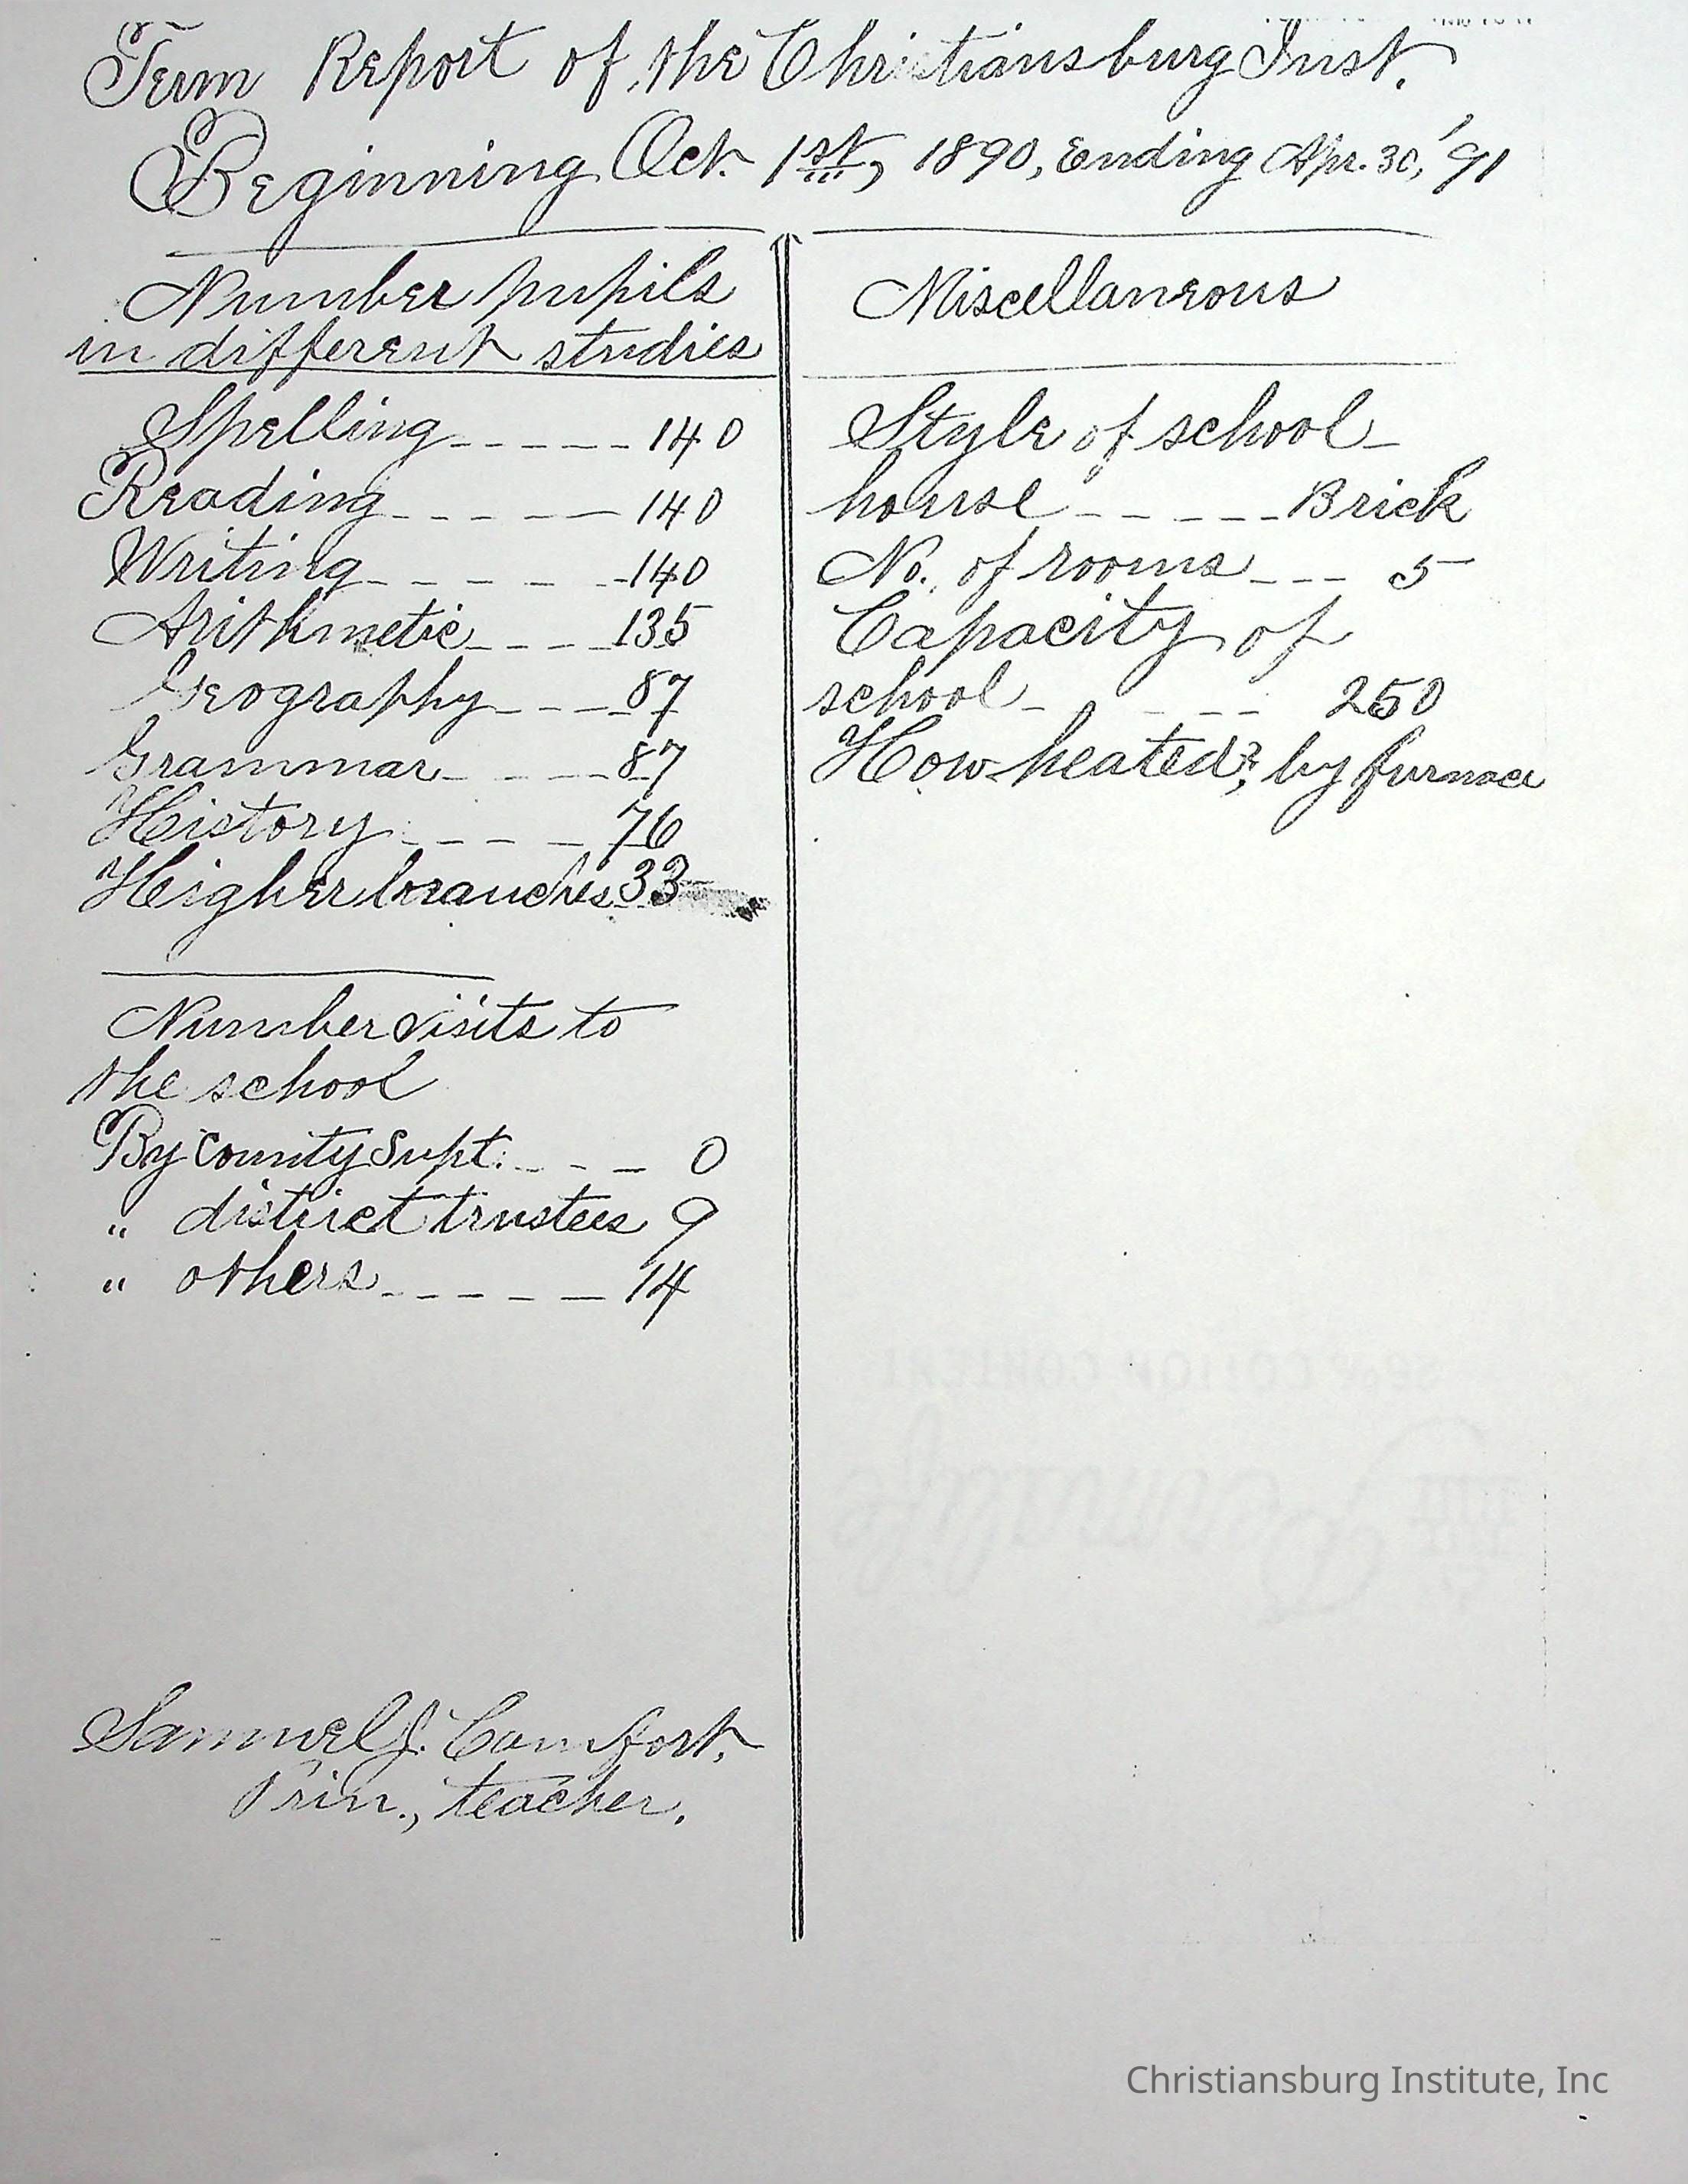 Term Report of the Christiansburg Inst.
Beginning Oct. 1st, 1890, Ending Apr. 30, '91
Number pupils
in different studies
Spelling_ _ _ _ _ 140
Reading_ _ _ _ _ 140
Writing_ _ _ _ _ 140
Arithmetic_ _ _ _ 135
Geography_ _ _ _ 87
Grammar_ _ _ _ 87
History_ _ _ _ 76
Heigher branches 33
Number visits to
the school
By County Supt. _ _ _ 0
" district trustees 9
" others_ _ _ _ _ 14
Samuel J. Comfort,
Prin., teacher.
Miscellaneous
Style of school-
house_ _ _ _ _ Brick
No. of rooms_ _ _ 5
Capacity of
school_ _ _ _ 250
How heated?, by furnace
COTTON CONTENT
Christiansburg Institute, Inc